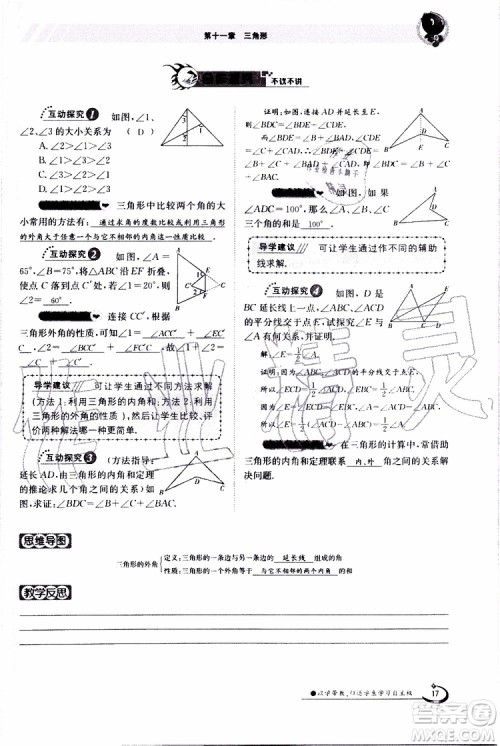 第十一章 三角形
不议不讲
互动探究1 如图,∠1、
∠2、∠3 的大小关系为 ( D )
A. ∠1>∠2>∠3
B. ∠1>∠3>∠2
C. ∠2>∠1>∠3
D. ∠3>∠2>∠1
三角形中比较两个角的大
小常用的方法有: 通过求角的度数比较或利用三角形
的外角大于任意一个与它不相邻的内角比较 .
互动探究2 如图,∠A=
65°,∠B=75°,将△ABC 沿 EF 折叠,
使点 C 落到点 C′处,若∠1=20°,则
∠2= 60° .
连接 CC′,根据
三角形外角的性质,可得∠1=∠ ACC′ +∠ AC′C
,∠2=∠ BCC′ +∠ BC′C .
导学建议 可让学生通过不同方法求解
(方法 1:利用三角形的内角和;方法 2:利用
三角形的外角),比较两种方法的优劣,评
价两种方法哪一种更简单.
互动探究3 (方法指导:
延长 AD,由三角形的内角和定理
的推论求几个角之间的关系)如
图,求证:∠BDC=∠B+∠C+
∠BAC.
证明:如图,连接 AD 并延长至 E,
则∠BDE=∠B+∠BAD,
∠EDC=∠C+∠CAD,
∴∠BDE+∠EDC=∠B+∠BAD
+∠C+∠CAD,即∠BDC=∠B+∠C
+∠BAC.
如图,如果
∠ADC=100°,那么∠A、∠B、∠C
三个角的和是 100° .
导学建议 可让学生通过作不同的辅助
线求解.
互动探究4 如图,D 是
△ABC 的
的平分线交于点 E,试探究∠E
与∠A
解:∠E=½∠A.
∴∠ECD=½∠ACD,∠EBC=½∠ABC.
三角形的计算中,常借助
三角形的内角和定理联系 内、外 角之间的关系解
决问题.
思维导图
三角形的外角
定义:三角形的一条边与另一条边的 延长线 组成的角
性质:三角形的一个外角等于 与它不相邻的两个内角 的和
教学反思
以学带教,促进学生学习自主权
17